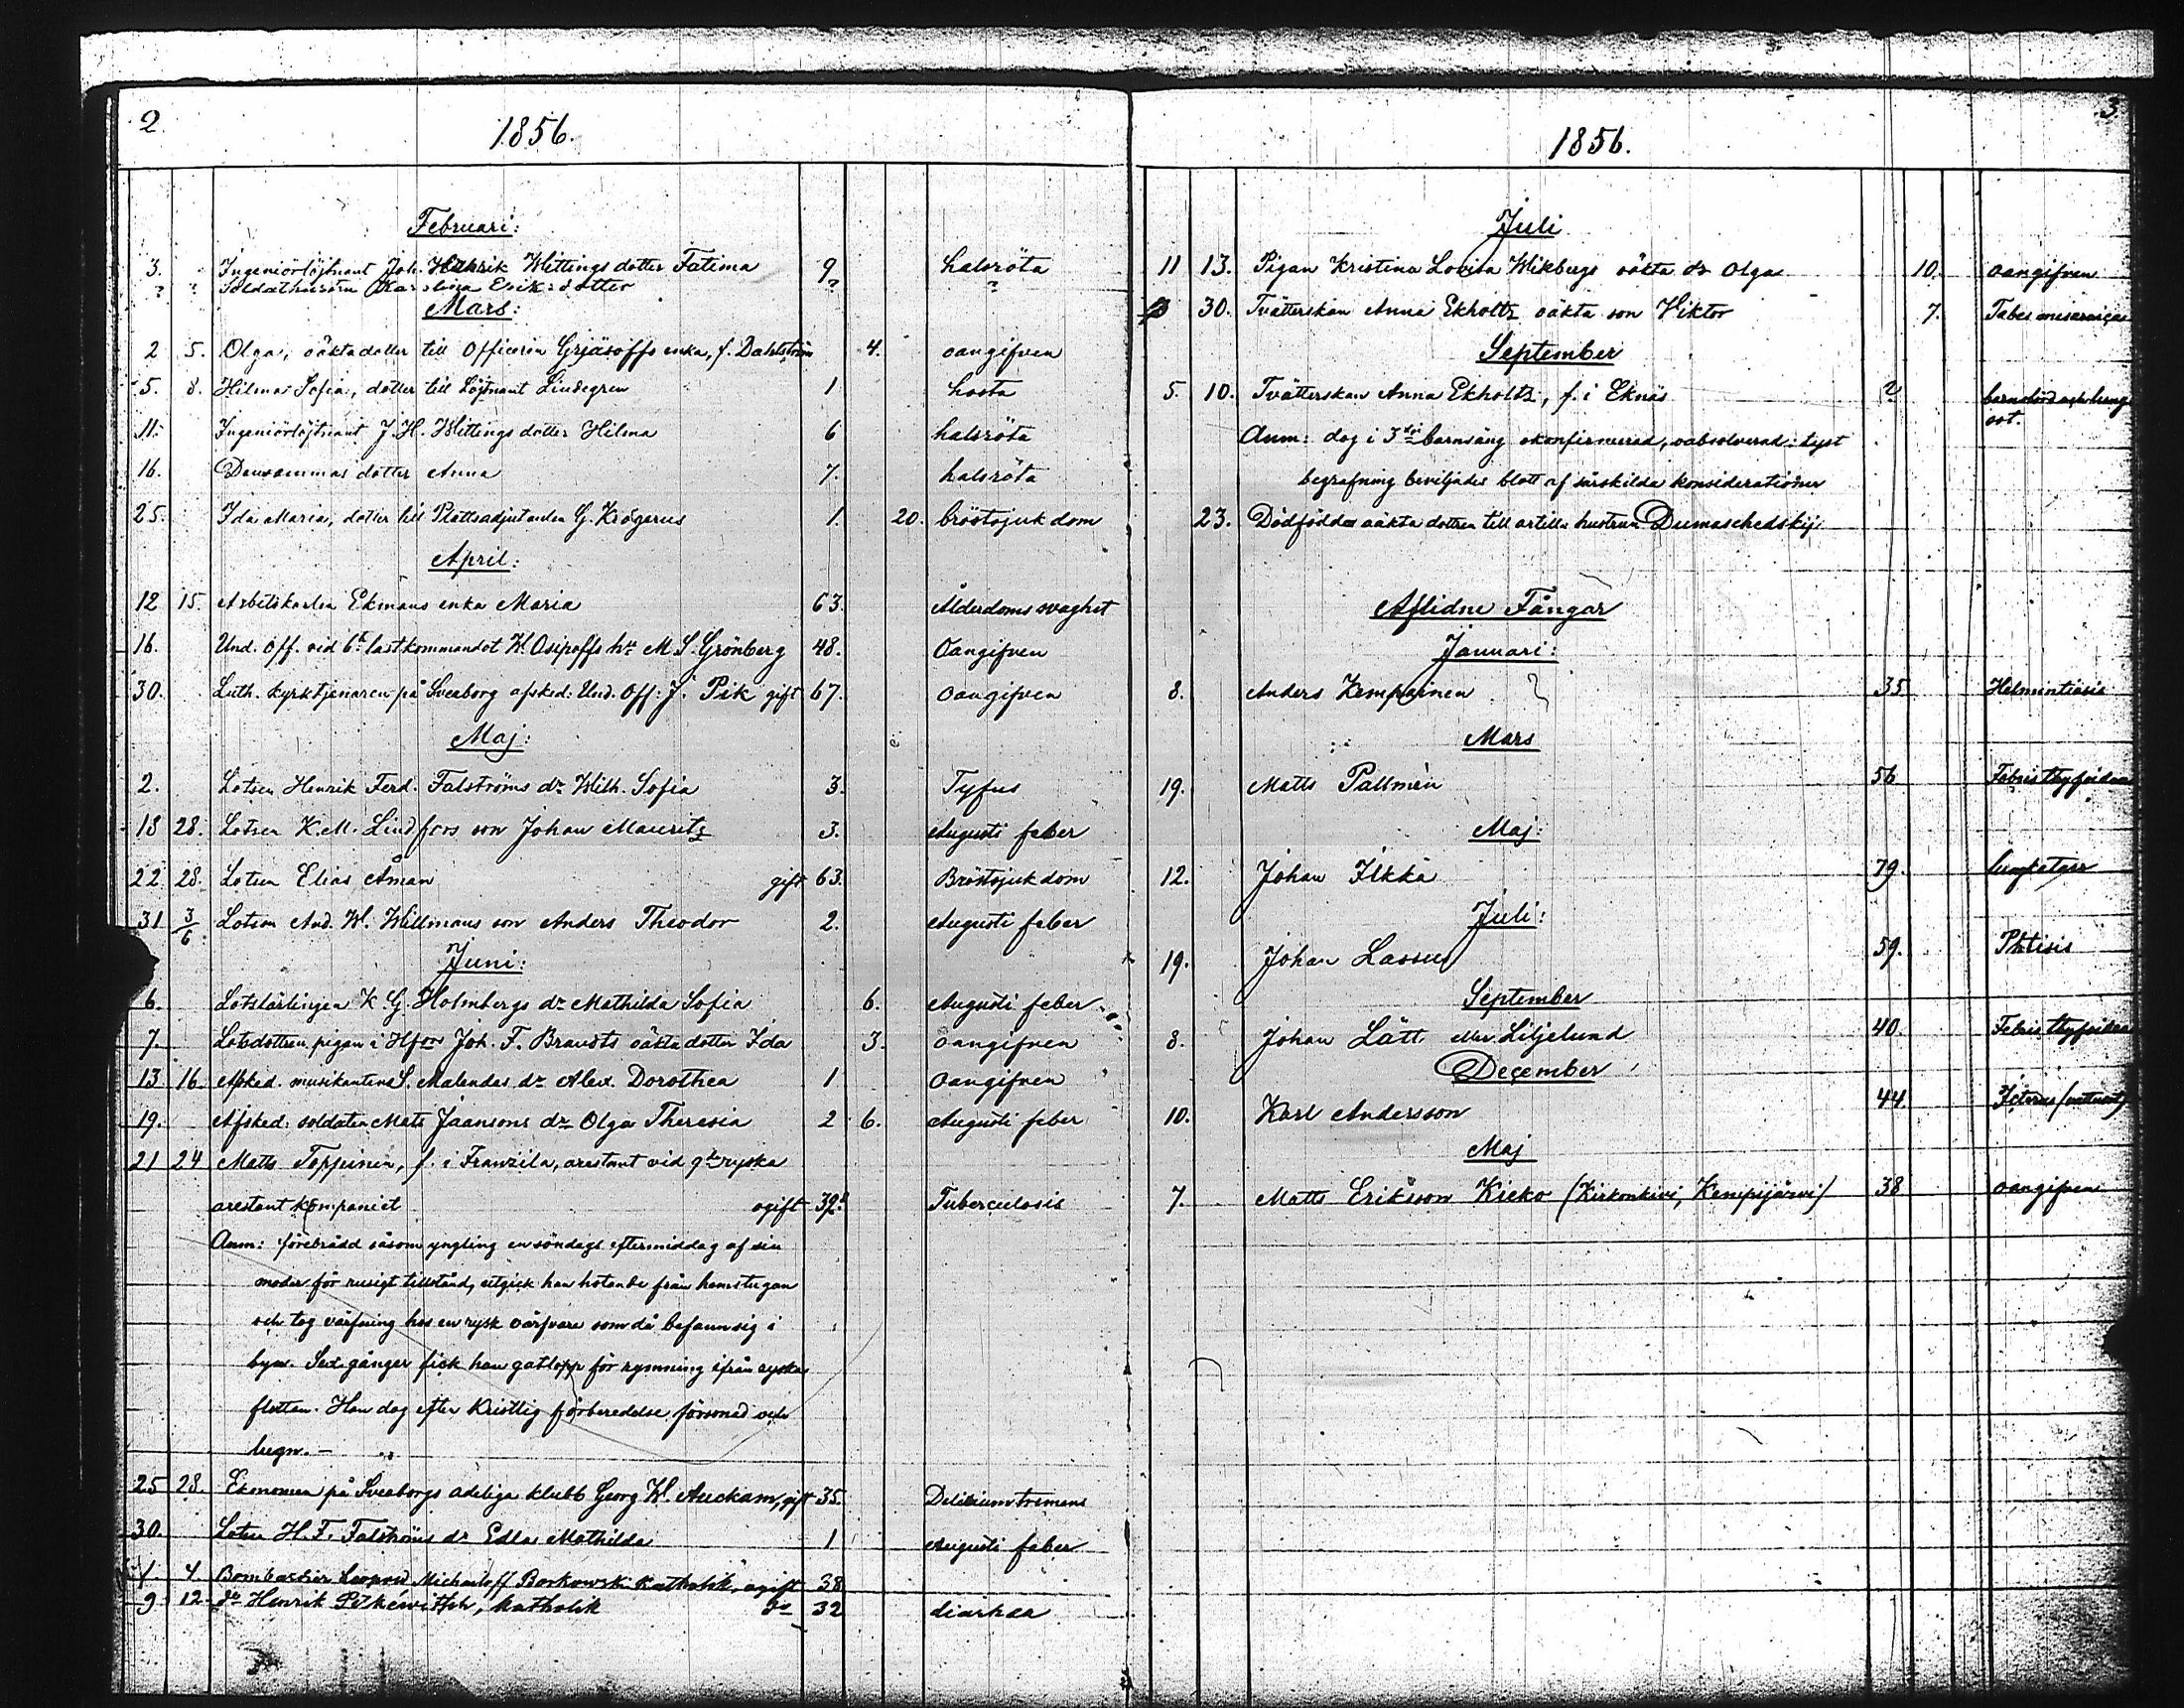 2
1856.
Februari:
3. Ingeniörlöjtnant Joh. Henrik Wettings dotter Fatima 9 halsröta
? ? Soldathustrun Karolina Eriksdotter ? ?
Mars:
2 5. Olga, oäkta dotter till Officerin Grjäsoffs enka, f. Dahlström 4. oangifven
5. 8. Hilma Sofia, dotter till Löjtnant Lindegren 1. hosta
11. Ingeniörlöjtnant J. H. Wettings dotter Hilma 6 halsröta
16. Densammas dotter Anna 7. halsröta
25. Ida Maria, dotter till Plattsadjutanten G. Krogerus 1. 20. bröstsjukdom
April:
12 15. Arbetskarlen Ekmans enka Maria 63. Ålderdomssvaghet
16. Und. Off. vid 6t lastkommandot W. Osipoffs hu M. S. Grönberg 48. Oangifven
30. Luth. kyrktjenaren på Sveaborg afsked: Und. Off: J. Pik gift 67. oangifven
Maj:
2. Lotsen Henrik Ferd. Falströms dr Wilh. Sofia 3. Tyfus
18 28. Lotsen K. M. Lindfors son Johan Mauritz 3. Augusti feber
22 28. Lotsen Elias Åman gift 63. Bröstsjukdom
31 3/6. Lotsen And. W. Willmans son Anders Theodor 2. Augusti feber
Juni:
6. Lotslärlingen K G. Holmbergs dr Mathilda Sofia 6. Augusti feber
7. Lotsdottren, pigan i Hfors Joh. F. Brandts oäkta dotter Ida 3. oangifven
13 16 Afsked. musikanten S. Malendas dr Alex. Dorothea 1 Oangifven
19. Afsked. soldaten Mats Jaansons dr Olga Theresia 2 6. Augusti feber
21 24 Matts Toppinen, f. i Franzila, arestant vid 9de ryska
arestant kompaniet ogift 39. Tuberculosis
Anm: förebrådd såsom yngling en söndags eftermiddag af sin
moder för rusigt tillstånd, utgick han hotande från hemstugan
och tog värfning hos en rysk värfvare som då befann sig i
byn. Sex gånger fick han gatlopp för rymning ifrån ryska
flottan. Han dog efter kristlig förberedelse försonad och
lugn. –
25 28. Ekonomen på Sveaborgs adeliga klubb Georg W. Auckam, gift 35. Delirium tremens
30. Lotsen H. F. Falströms dr Edla Mathilda 1 Augusti feber
1. 4. Bombardier Leopold Michailoff Borkowski Katholik, ogift 38
9 12 do Henrik Pitkewitsch, katholik do 32 diarhea
3
1856.
Juli
11 13. Pigan Kristina Lovisa Wikbergs oäkta dr Olga 10. oangifven
30. Tvätterskan Anna Ekholtz oäkta son Viktor 7. Tabes meseraica
September
5. 10. Tvätterskan Anna Ekholtz, f. i Eknäs ? barnsbörd och lung
sot.
Anm: dog i 3dje barnsäng okonfirmerad, oabsolverad: tyst
begrafning beviljades blott af särskilda konsiderationer
23. Dödfödda oäkta dottren till artilla hustrun Dumaschedskij
Aflidne Fångar
Januari:
8. Anders Kempainen 35 Helmintiasis
Mars
19. Matts Pallmén 56 Febris thyfoidea
Maj:
12. Johan Ilkka 79.
Juli:
19. Johan Lassus 59. Phtisis
September
8. Johan Lätt eller Liljelund 40. Febris thyfoidea
December
10. Karl Andersson 44 Icterus
Maj
7. Matts Eriksson Kieko (Kirkonkivi, Kempijärvi) 38 oangifven